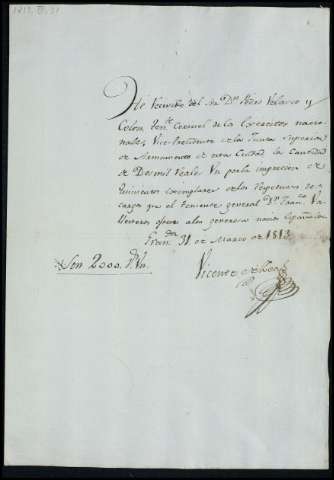 1813, III, 31
He recivido del Sr. Dn. Pedro Velarco y
Colon Tente. Coronel de los Exercitos nacio-
nales, Vice-Presidente de la Junta Superior
de Armamento de esta Ciudad la Cantidad
de Dos mil Reales Vn por la impresion de
quinientos exemplares de los
cargos que el teniente general Dn. Franco. Ba-
llesteros ofrece a la generosa nacion Española
31 de Marzo de 1813
Son 2000. Rs. Vn.
Vicente